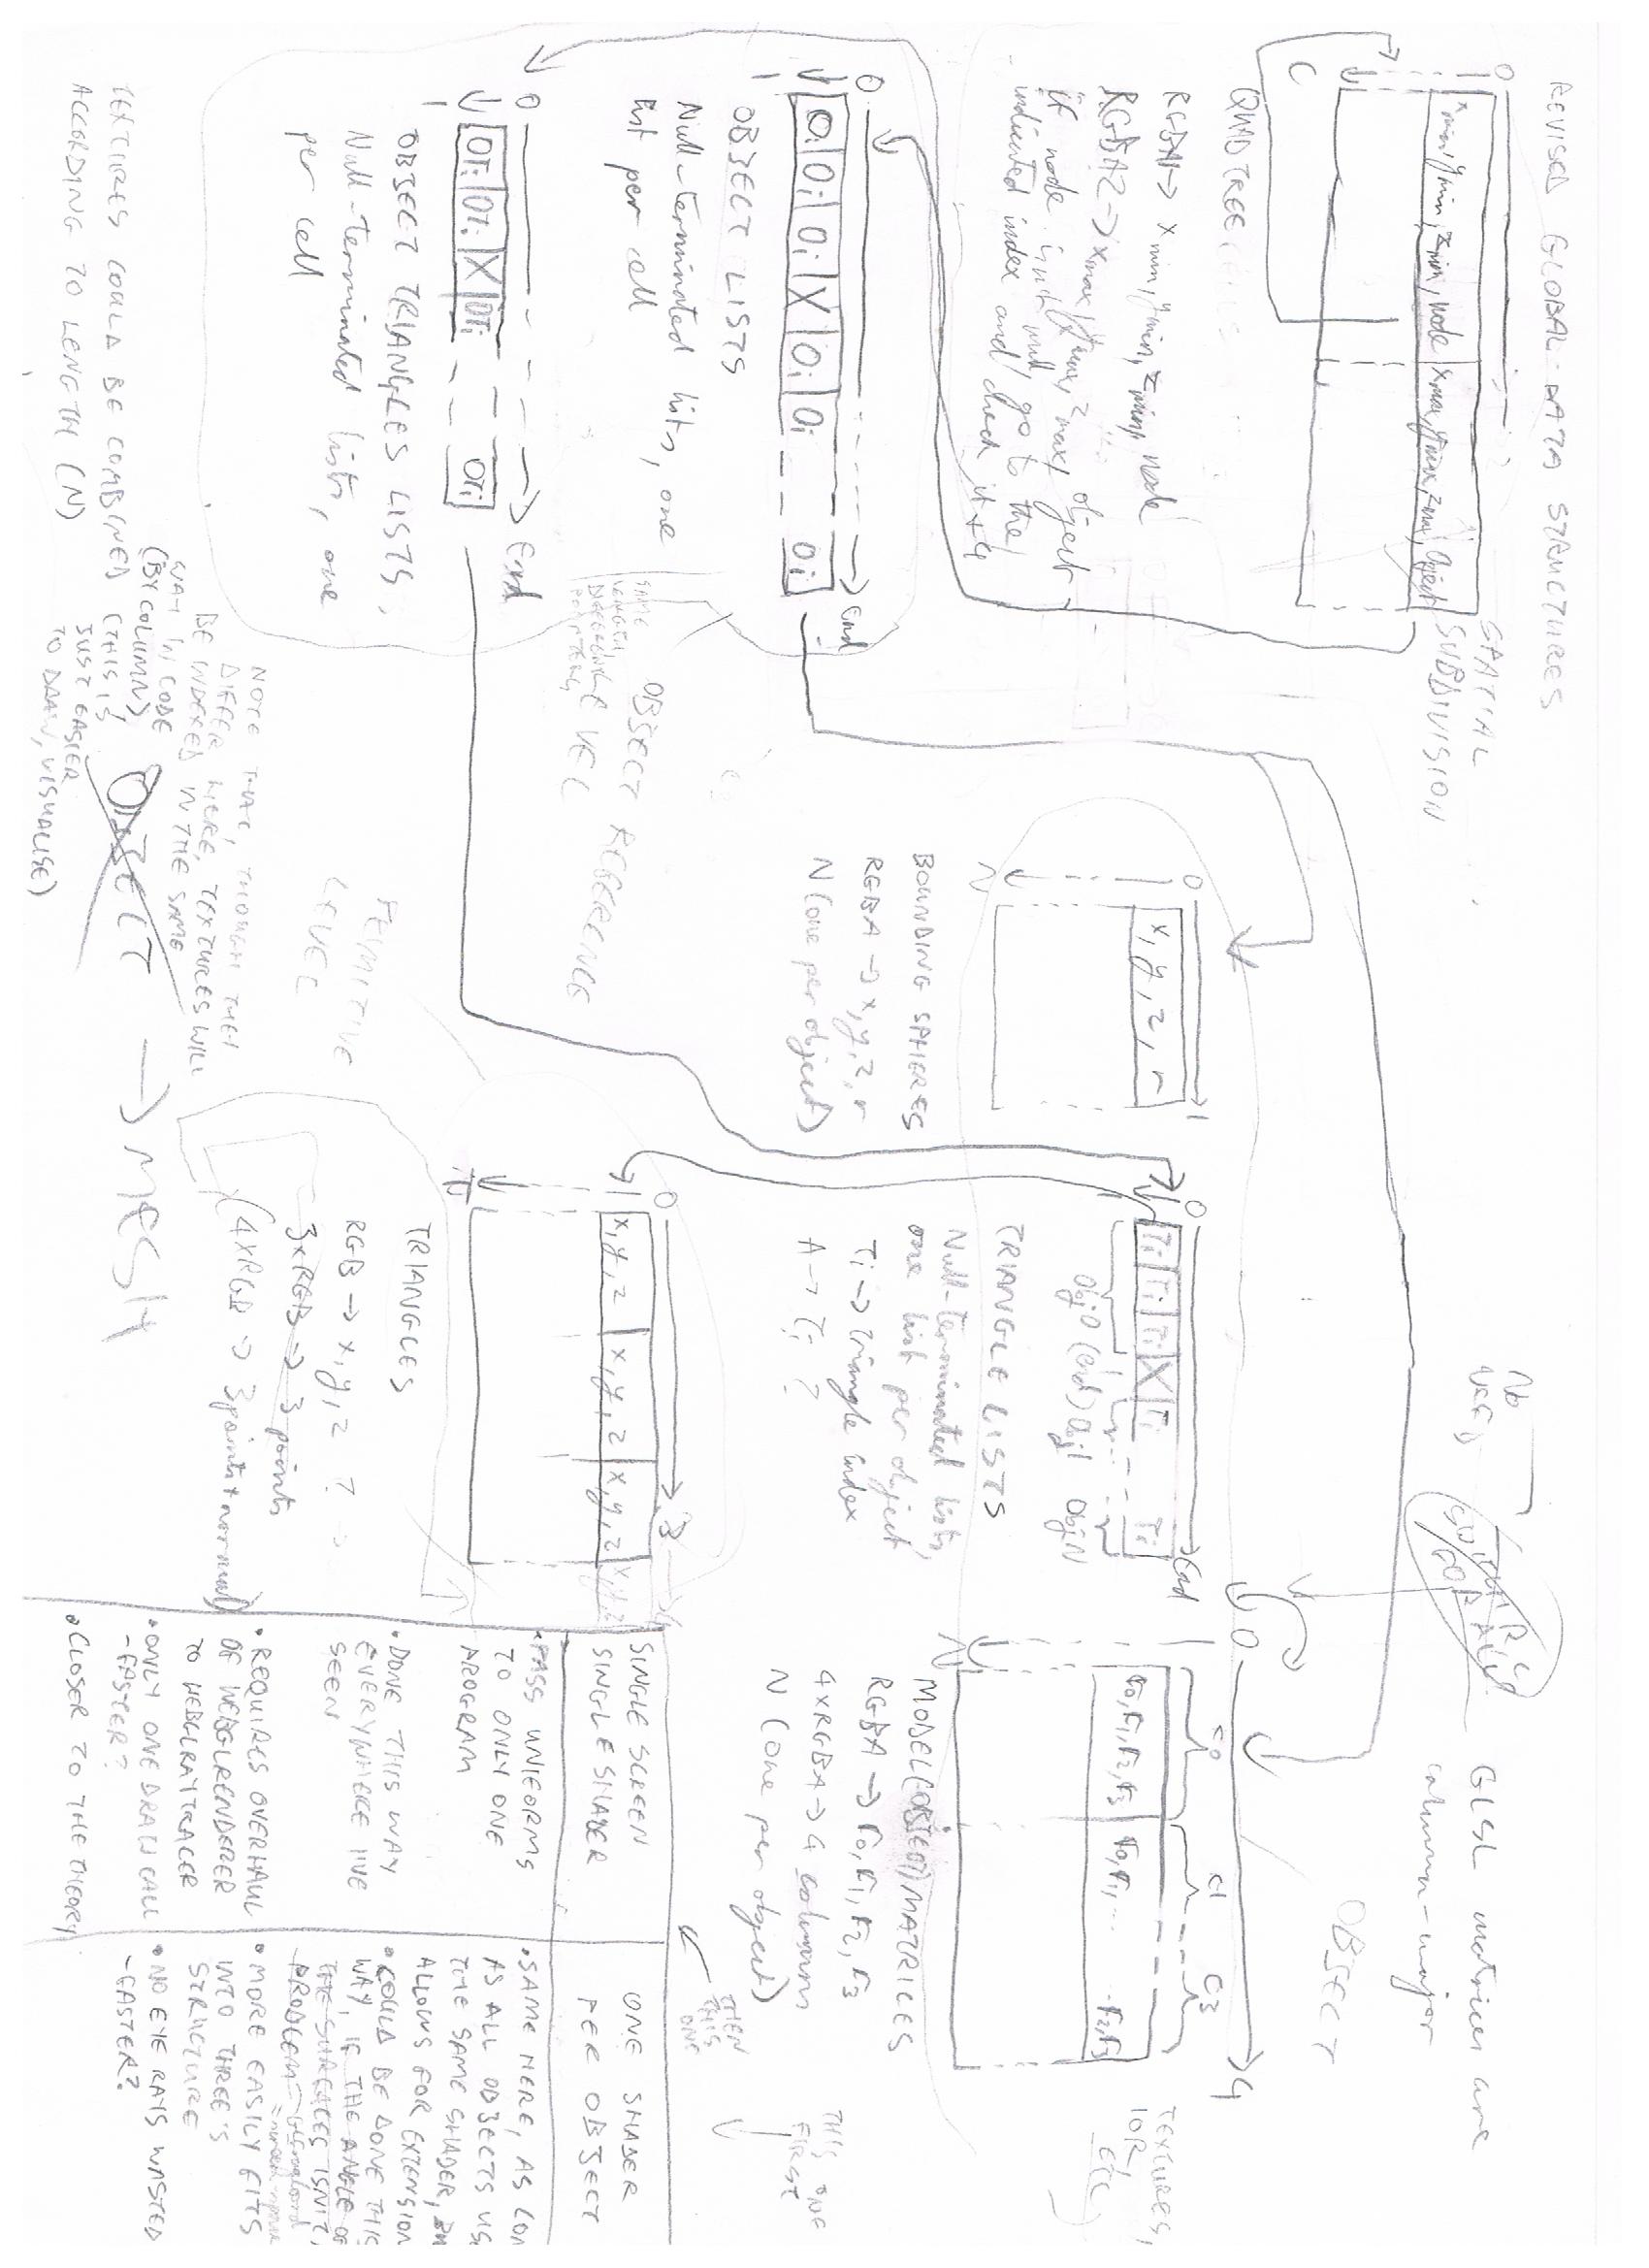 REVISED GLOBAL DATA STRUCTURES
SPATIAL
SUBDIVISION
0
1
xmin, ymin, zmin, node | xmax, ymax, zmax, object
C
QUADTREE
RGBA1 → xmin, ymin, zmin, node
RGBA2 → xmax, ymax, zmax, object
if node isn't null, go to the
indicated index and check it + 4
0
1
End
Oi | Oi | Oi | X | Oi | Oi
Oi
OBJECT LISTS
Null-terminated lists, one
list per cell
0
1
End
OTi | OTi | X | OTi
OTi
OBJECT TRIANGLES LISTS,
Null-terminated lists, one
per cell
TEXTURES COULD BE COMBINED
ACCORDING TO LENGTH (N)
NOTE THAT, THOUGH THEY
DIFFER HERE, TEXTURES WILL
BE INDEXED IN THE SAME
WAY IN CODE
(BY COLUMN)
(THIS IS
JUST EASIER
TO DRAW, VISUALISE)
SAME
LENGTH
DIFFERENT
OBJECT REFERENCE
LEVEL
PRIMITIVE
LEVEL
OBJECT → MESH
0
1
N
x, y, z, r
BOUNDING SPHERES
RGBA → x, y, z, r
N (one per object)
0
End
Ti | Ti | Ti | X | Ti
Ti
Obj0 (end) Obj1 ObjN
TRIANGLE LISTS
Null-terminated lists,
one list per object
Ti → triangle index
A → Ti ?
0
1
3
4
x, y, z | x, y, z | x, y, z | x, y, z
TRIANGLES
RGB → x, y, z ?
3xRGB → 3 points
(4xRGB → 3 points + normal)
NO
NEED
GLSL matrices are
column-major
OBJECT
0
4
1
N
C0
C1
C3
r0, r1, r2, r3 | r0, r1, ... r2, r3
MODEL (OBJECT) MATRICES
RGBA → r0, r1, r2, r3
4xRGBA → 4 columns
N (one per object)
TEXTURES,
IOR
etc.
THIS ONE
FIRST
THEN
THIS
ONE
SINGLE SCREEN
SINGLE SHADER
• PASS UNIFORMS
TO ONLY ONE
PROGRAM
• DONE THIS WAY
EVERYWHERE I'VE
SEEN
• REQUIRES OVERHAUL
OF WEBGLRENDERER
TO WEBGLRAYTRACER
• ONLY ONE DRAW CALL
- FASTER?
• CLOSER TO THE THEORY
ONE SHADER
PER OBJECT
• SAME HERE, AS LON
AS ALL OBJECTS USE
THE SAME SHADER,
ALLOWS FOR EXTENSION
• COULD BE DONE THIS
WAY, IF THE ANGLE OF
THE SURFACES ISN'T
PROBLEM
• MORE EASILY FITS
INTO THREE'S
STRUCTURE
• NO EYE RAYS WASTED
- FASTER?